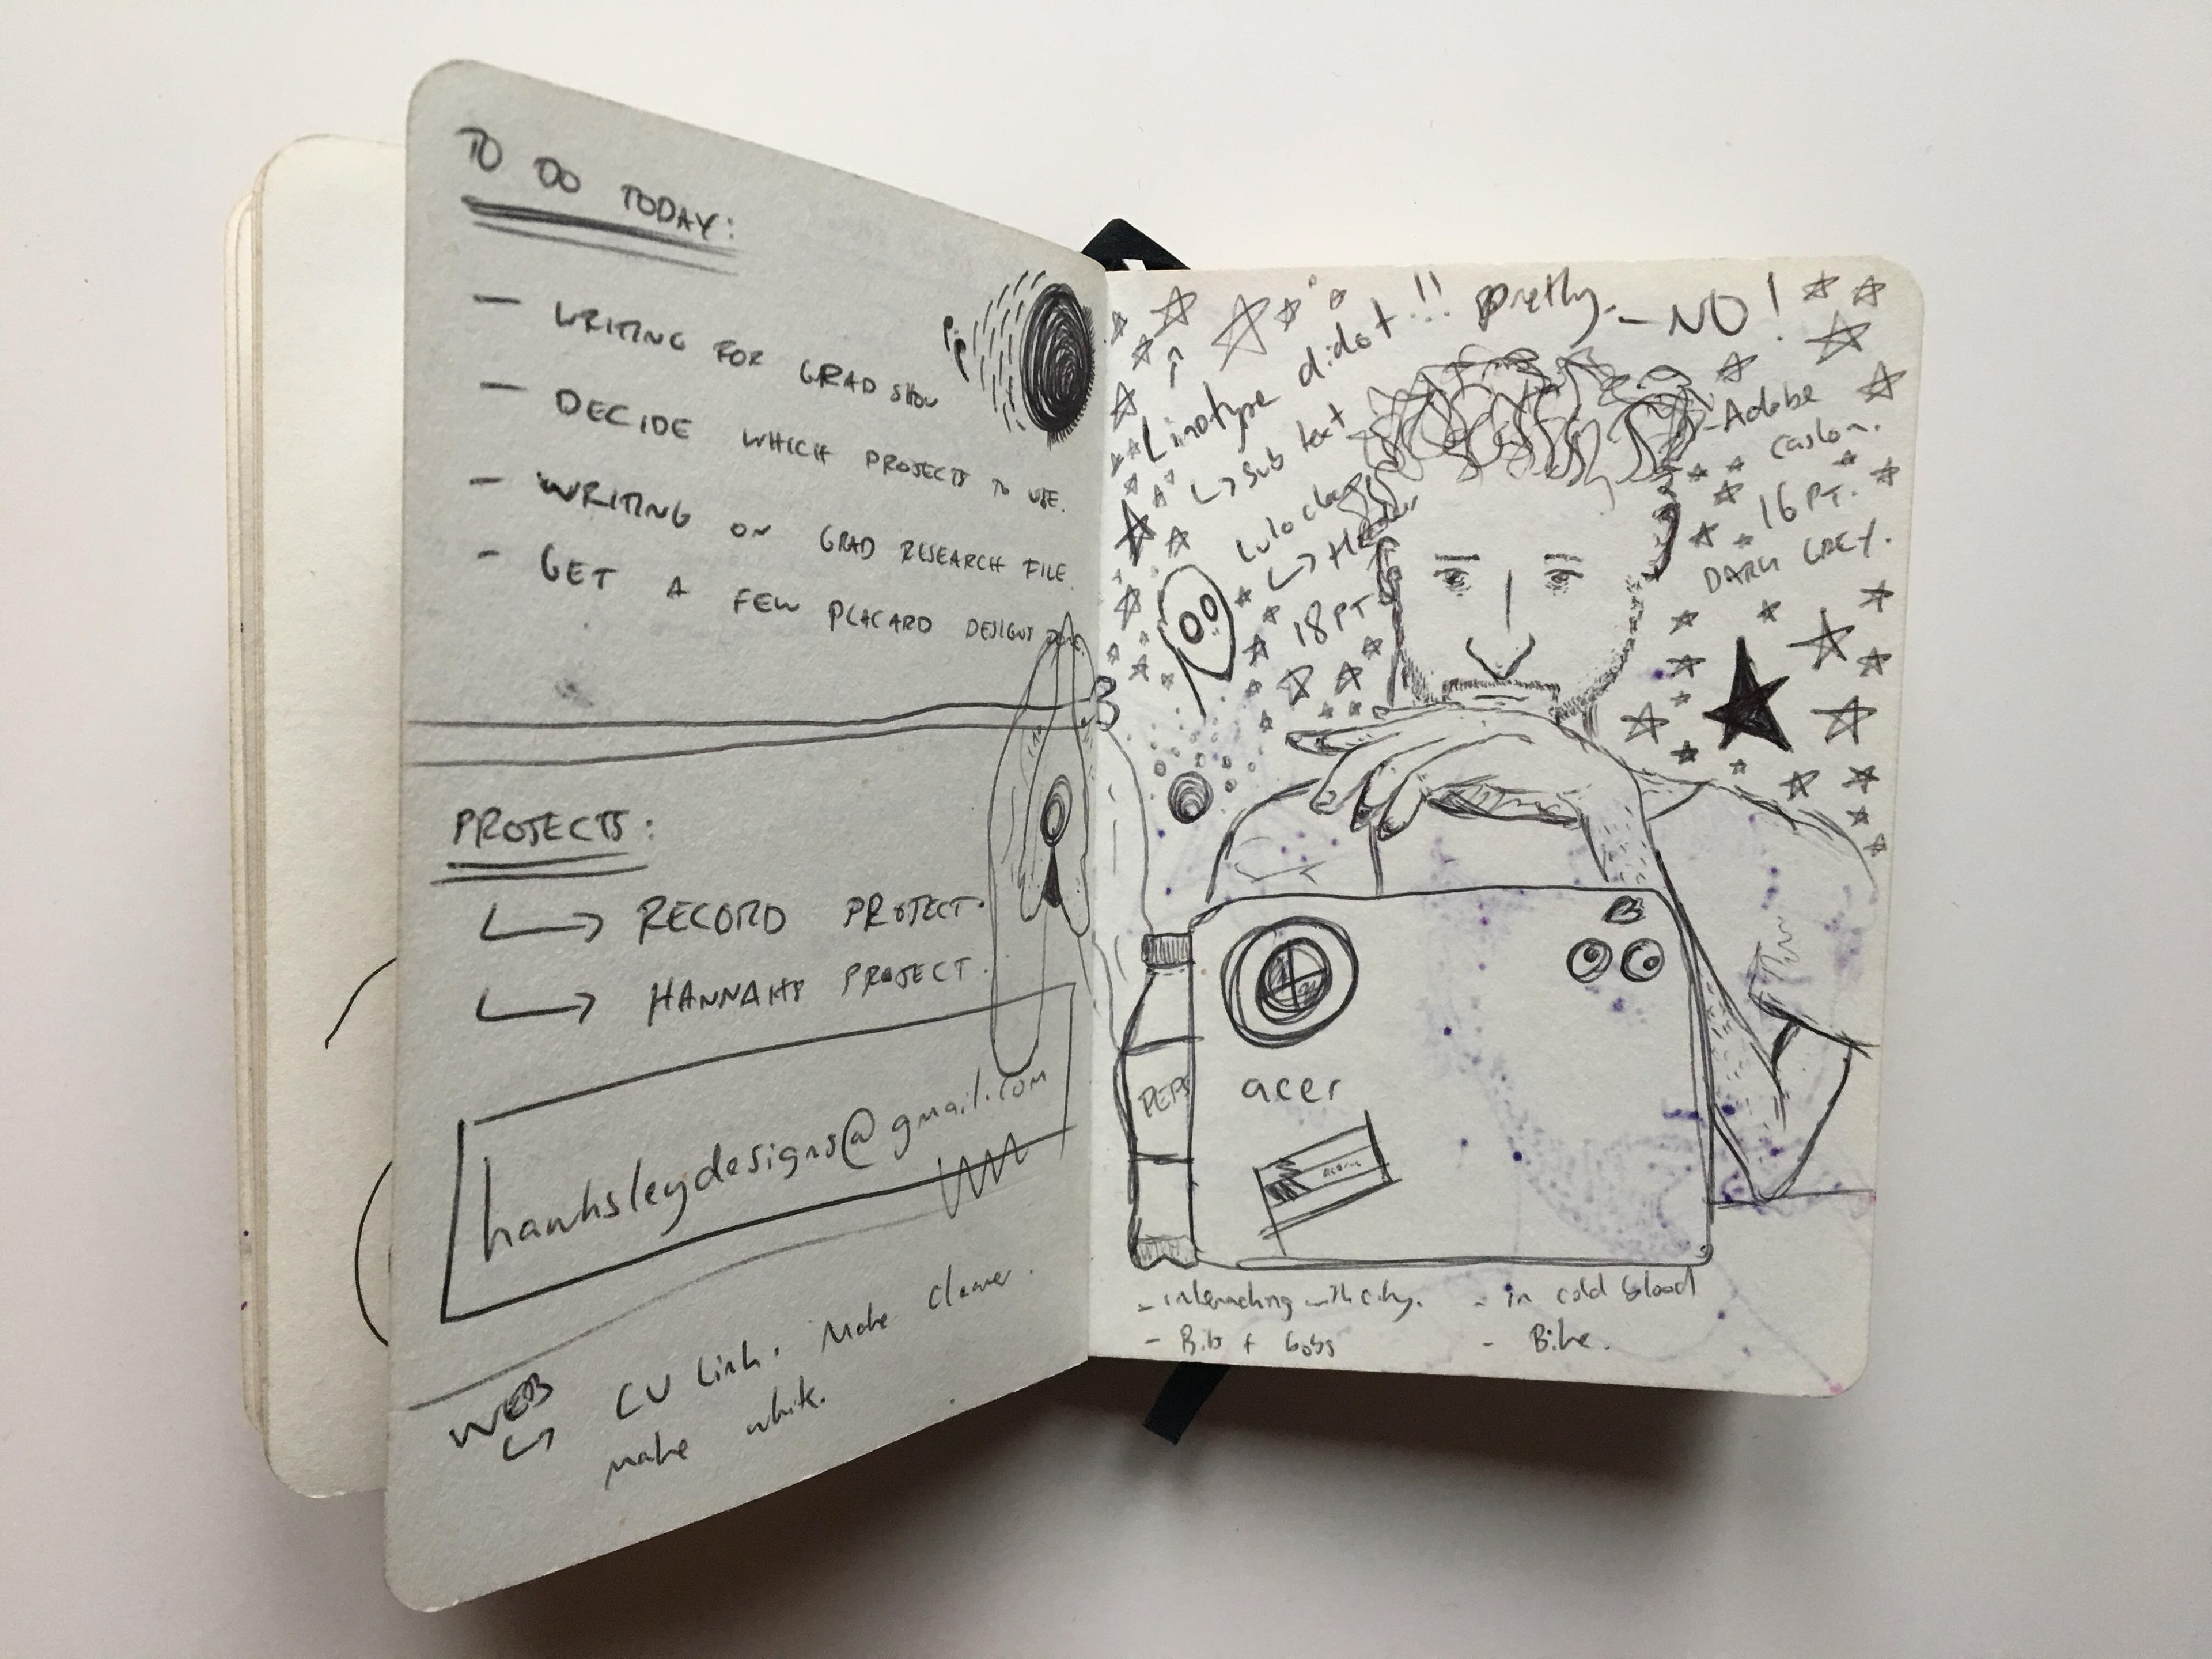 TO DO TODAY:
- WRITING FOR GRAD SHOW
- DECIDE WHICH PROJECTS TO USE.
- WRITING ON GRAD RESEARCH FILE.
- GET A FEW PLACARD DESIGNS DONE.
PROJECTS:
RECORD PROJECT.
HANNAHS PROJECT.
hawksleydesigns@gmail.com
WEB
CV Link. Make cleaner.
make white.
Linotype didot!! pretty. - NO!
Sub text
Lulo clean
18 PT
- Adobe
caslon.
16 PT.
DARK GREY.
PEPS
acer
- interacting with city.
- Bib + bobs
- in cold blood
- Bike.